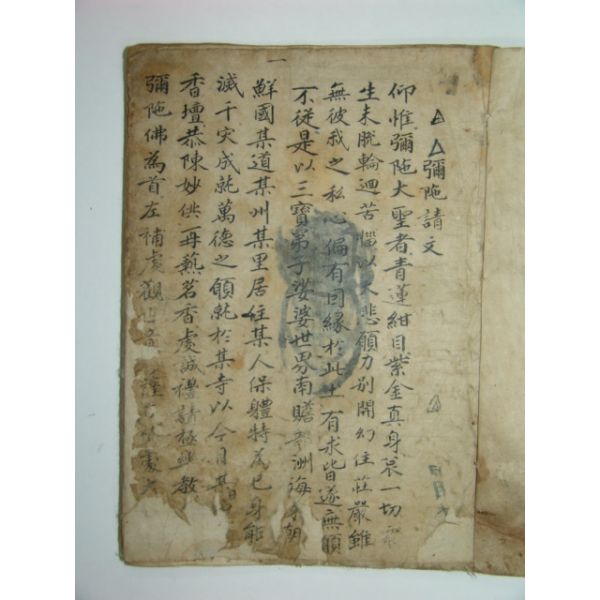 △△彌陁請文
仰惟彌陁大聖者青蓮紺目紫金真身哀一切衆
生未脫輪迴苦惱以大悲願力別開幻住莊嚴雖
無彼我之私心偏有因緣於此土有求皆遂無願
不從是以三寶弟子娑婆世界南贍部洲海東朝
鮮國某道某州某里居住某人保體特爲己身能
滅千災成就萬德之願就於某寺以今月某日
香壇恭陳妙供再爇茗香虔誠禮請極樂教
彌陁佛爲首左補處觀世音